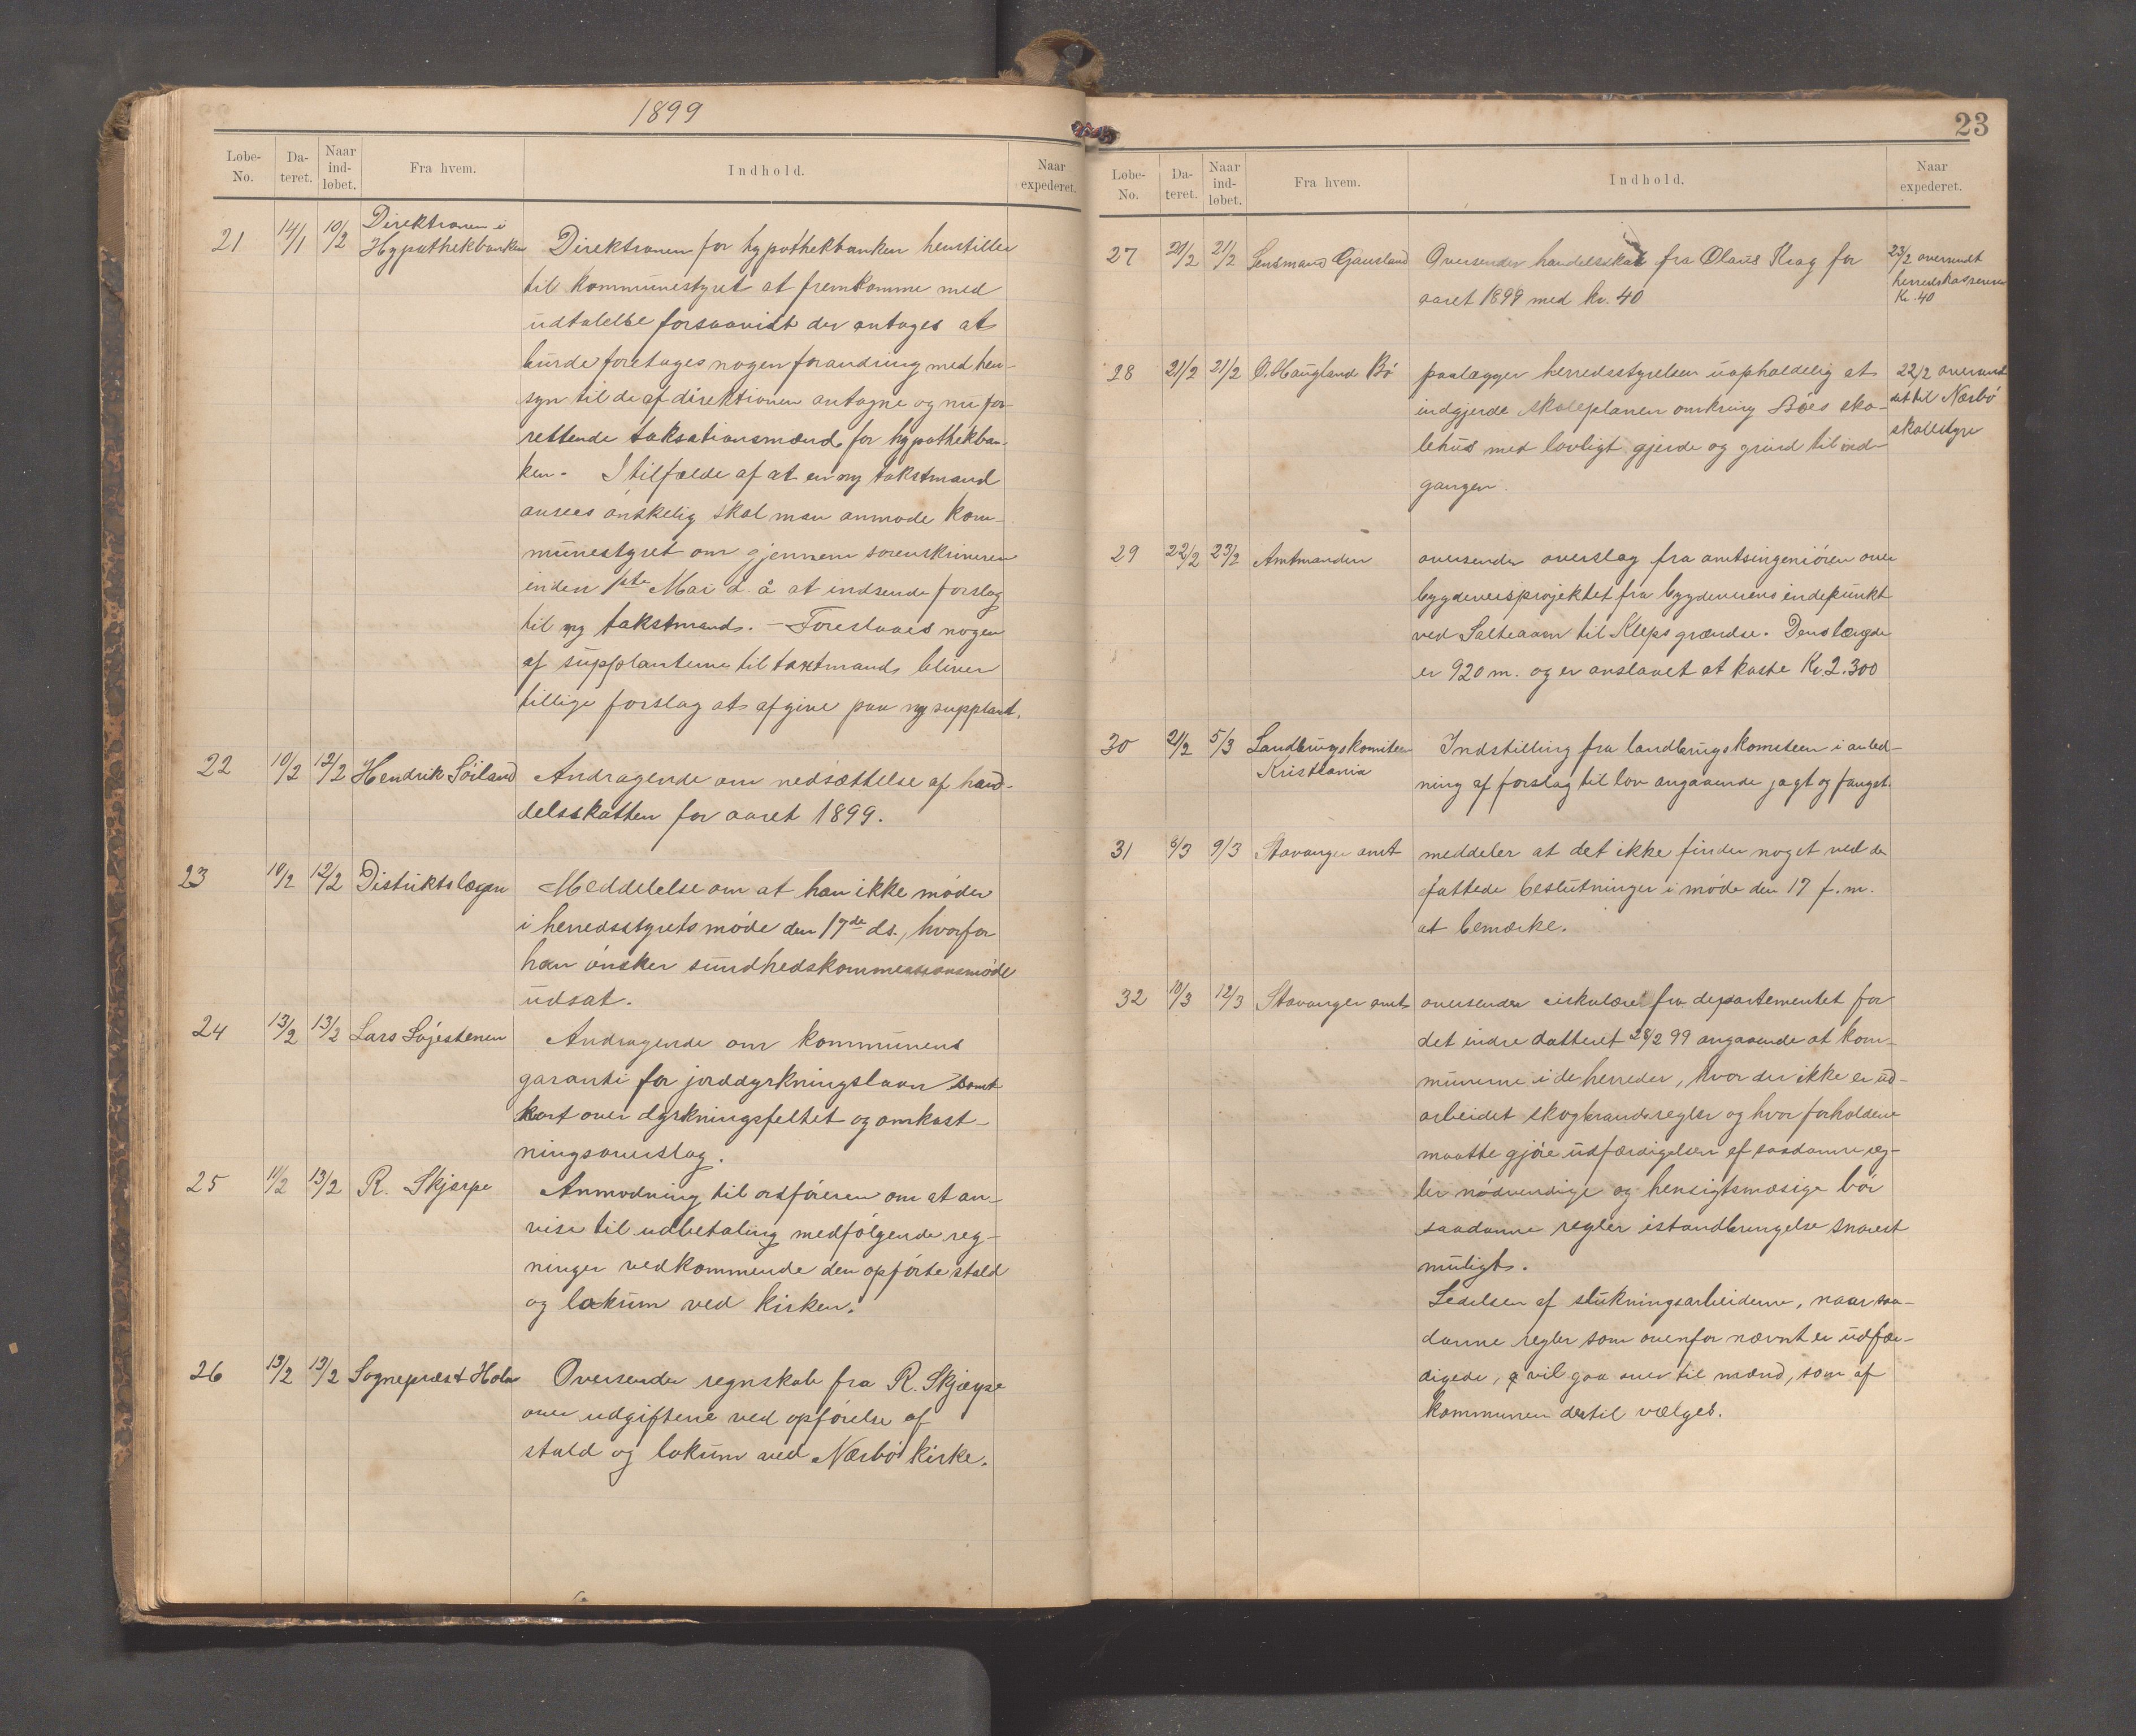 1899
Løbe-No. Da-teret. Naar ind-løbet. Fra hvem. Indhold. Naar expederet.
21 14/1 10/2 Direktionen i Hypothekbanken
Direktionen for hypothekbanken henstiller
til kommunestyret at fremkomme med
udtalelse forsaavidt der antages at
burde foretages nogen forandring med hen-
syn til de af direktionen antagne og nu for-
rettende taksationsmænd for hypothekban-
ken. I tilfælde af at en ny takstmand
ansees ønskelig skal man anmode kom-
munestyret om gjennem sorenskriveren
inden 1ste Mai d. å at indsende forslag
til ny takstmand. - Foreslaaes nogen
af supplanterne til taxtmand, bliver
tillige forslag at afgive paa ny suppleant.
22 10/2 12/2 Hendrik Söiland
Andragende om nedsættelse af hand-
delsskatten for aaret 1899.
23 10/2 12/2 Distriktslægen
Meddelelse om at han ikke møder
i herredsstyrets møde den 17de ds., hvorfor
han ønsker sundhedskommessionsmøde
udsat.
24 13/2 13/2 Lars
Andragende om kommunens
garanti for jorddyrkningslaan samt
kart over dyrkningsfeltet og omkost-
ningsoverslag.
25 11/2 13/2 R. Skjærpe
Anmodning til ordføreren om at an-
vise til udbetaling medfølgende reg-
ninger vedkommende den opførte stald
og lokum ved kirken.
26 13/2 13/2 Sogneprest Holm
Oversender regnskab fra R. Skjærpe
over udgifterne ved opførelse af
stald og lokum ved Nærbø kirke.
23
Løbe-No. Da-teret. Naar ind-løbet. Fra hvem. Indhold. Naar expederet.
27 21/2 21/2 Lensmand Gausland
Oversender handelsskat fra Olaus Krag for
aaret 1899 med kr. 40
23/2 oversendt
herredskassereren
Kr. 40
28 21/2 21/2 O. Haugland Bø
paalægger herredsstyrelsen uopholdelig at
indgjerde skoleplanen omkring Bøes sko-
lehus med lovligt gjerde og grind til ind-
gangen.
22/2 oversendt
det til Nærbø
skolestyre
29 22/2 23/2 Amtmanden
oversender overslag fra amtsingeniøren over
bygdeveisprojektet fra bygdeveiens endepunkt
ved Salteaaen til Kleps grændse. Dens længde
er 920 m. og er anslaaet at koste Kr. 2.300
30 21/2 5/3 Landbrugskomiteen Kristiania
Indstilling fra landbrugskomiteen i anled-
ning af forslag til lov angaaende jagt og fangst.
31 6/3 9/3 Stavanger amt
meddeler at det ikke finder noget ved de
fattede beslutninger i møde den 17 f. m.
at bemærke.
32 10/3 12/3 Stavanger amt
oversender cirkulære fra departementet for
det indre datteret 28/2 99 angaaende at kom-
munerne i de herreder, hvor der ikke er ud-
arbeidet skogbrandsregler og hvor forholdene
maatte gjøre udfærdigelsen af saadanne reg-
ler nødvendige og hensigtsmæsige bør
saadanne regler istandbringelse snarest
muligt.
Ledelsen af slukningsarbeiderne, naar saa-
danne regler som ovenfor nævnt er udfær-
digede, vil gaa over til mænd, som af
kommunen dertil vælges.